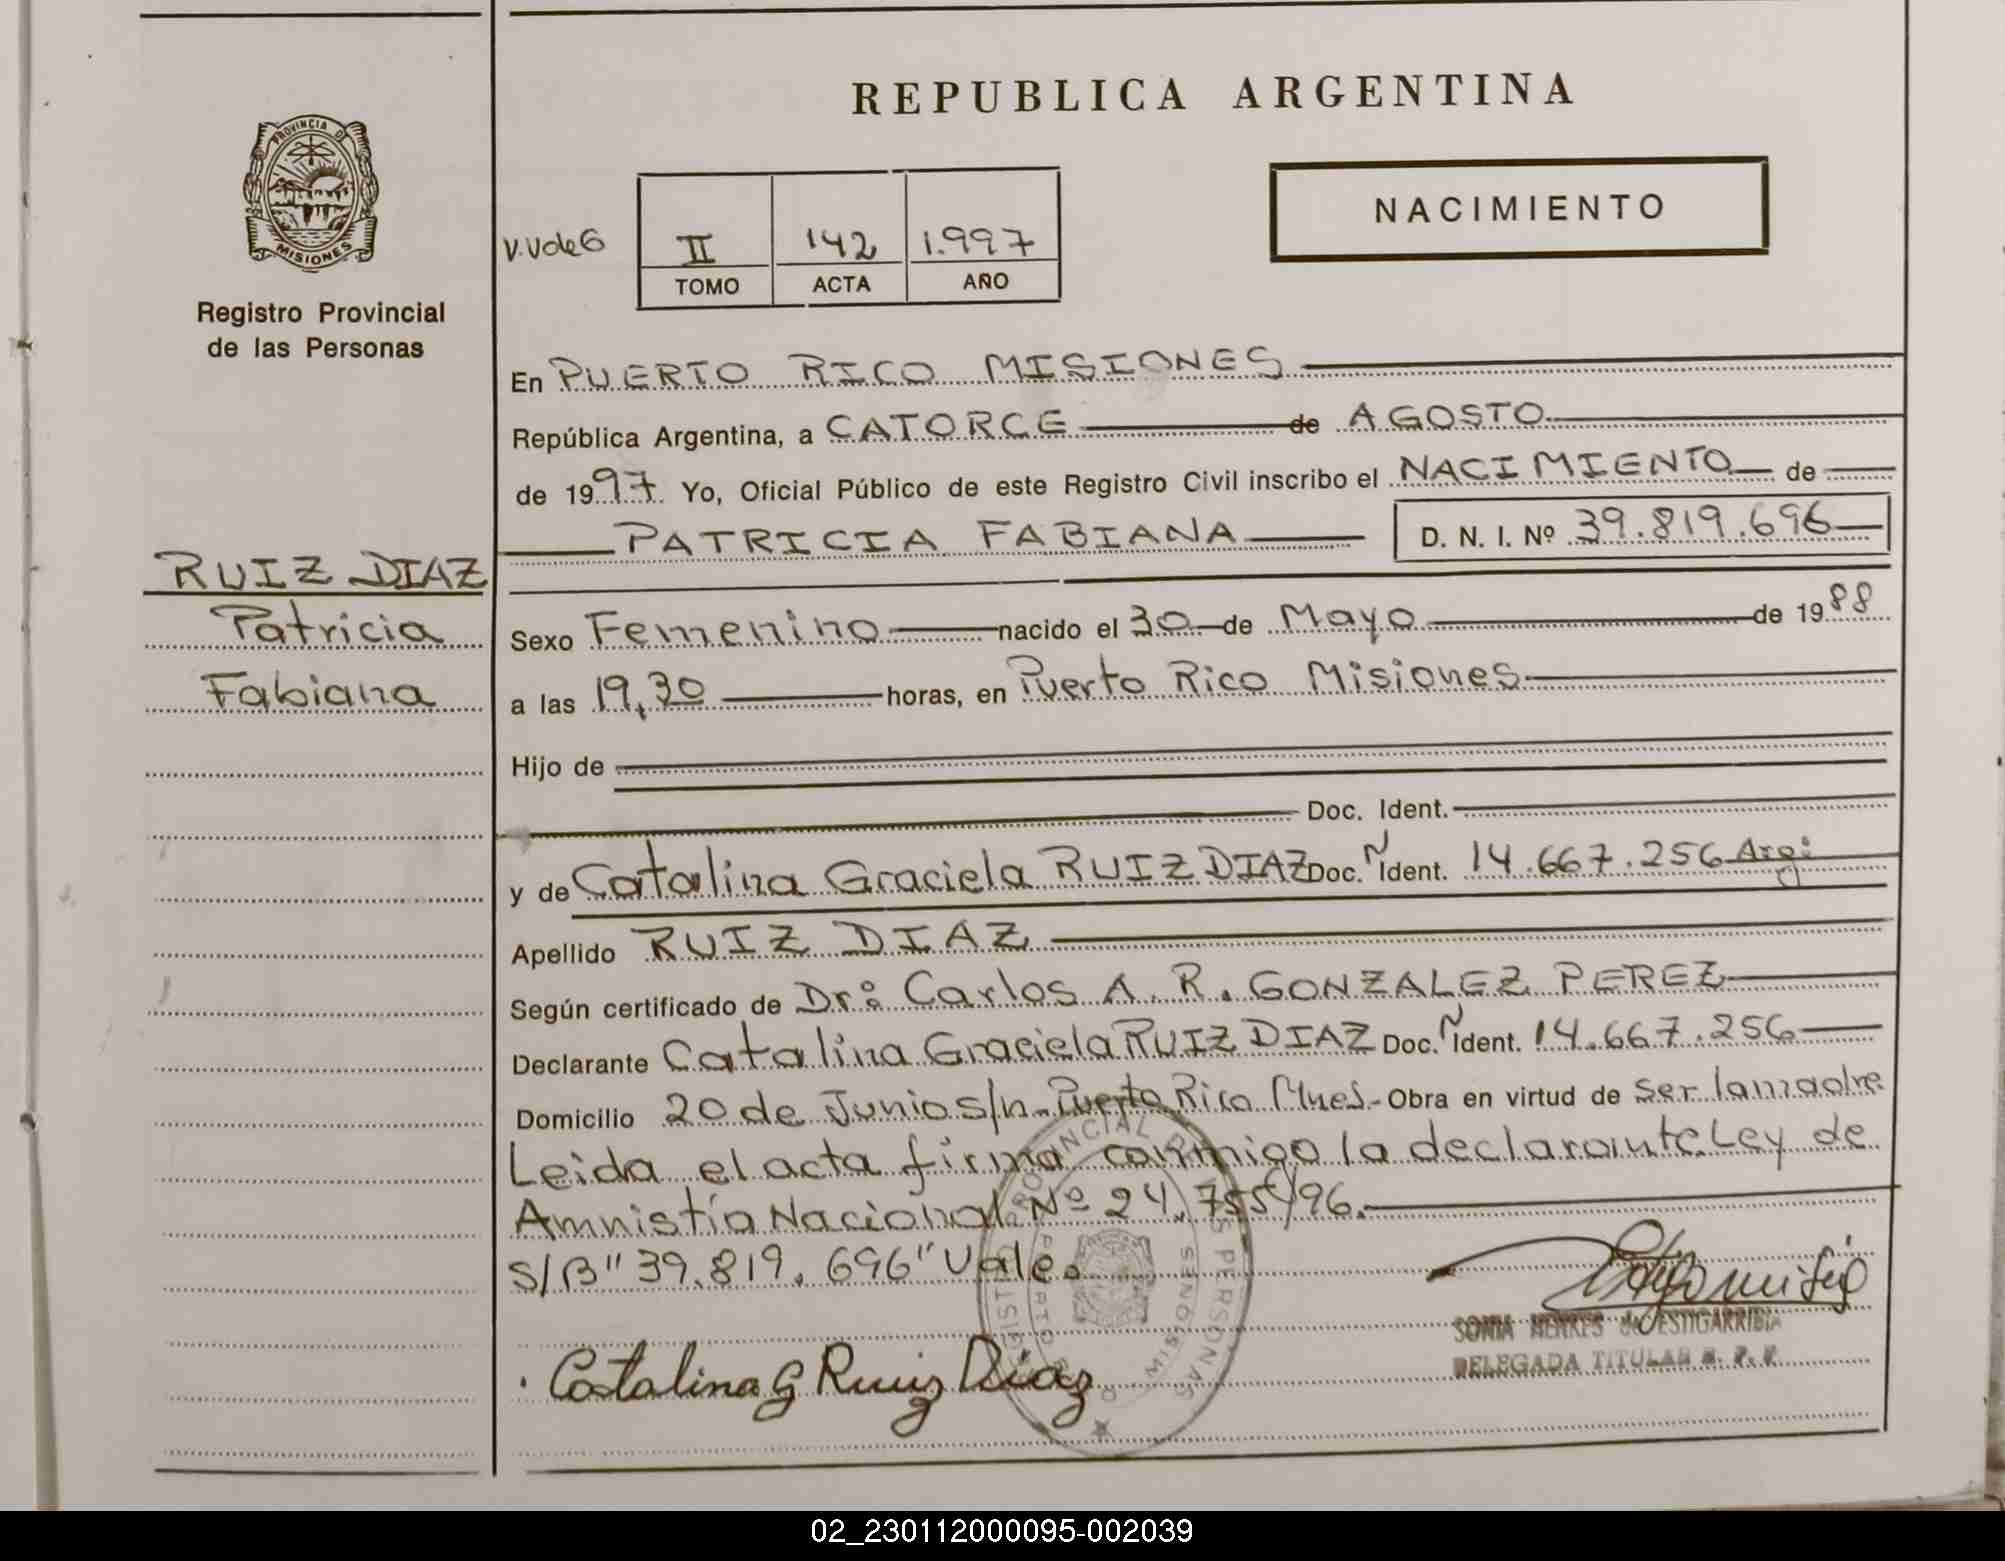 REPUBLICA ARGENTINA
PROVINCIA DE
MISIONES
Registro Provincial
de las Personas
NACIMIENTO
II 142 1.997
TOMO ACTA AÑO
En PUERTO RICO MISIONES
República Argentina, a CATORCE de AGOSTO
de 1997 Yo, Oficial Público de este Registro Civil inscribo el NACIMIENTO de
PATRICIA FABIANA D. N. I. Nº 39.819.696
RUIZ DIAZ
Patricia
Fabiana
Sexo Femenino nacido el 30 de Mayo de 1988
a las 19,30 horas, en Puerto Rico Misiones
Hijo de
Doc. Ident.
y de Catalina Graciela RUIZ DIAZ Doc. N Ident. 14.667.256 Arg:
Apellido RUIZ DIAZ
Según certificado de Dr: Carlos A. R. GONZALEZ PEREZ
Declarante Catalina Graciela RUIZ DIAZ Doc. N Ident. 14.667.256
Domicilio 20 de Junio s/n Puerto Rico Mnes.- Obra en virtud de ser la madre
Leida el acta firma conmigo la declarante. Ley de
Amnistía Nacional Nº 24.755/96.
S/B "39.819.696" Vale.
Catalina G Ruiz Diaz
SONIA DE ESTIGARRIBIA
DELEGADA TITULAR R. P. P.
REGISTRO PROVINCIAL DE LAS PERSONAS
PUERTO RICO MISIONES
02_230112000095-002039